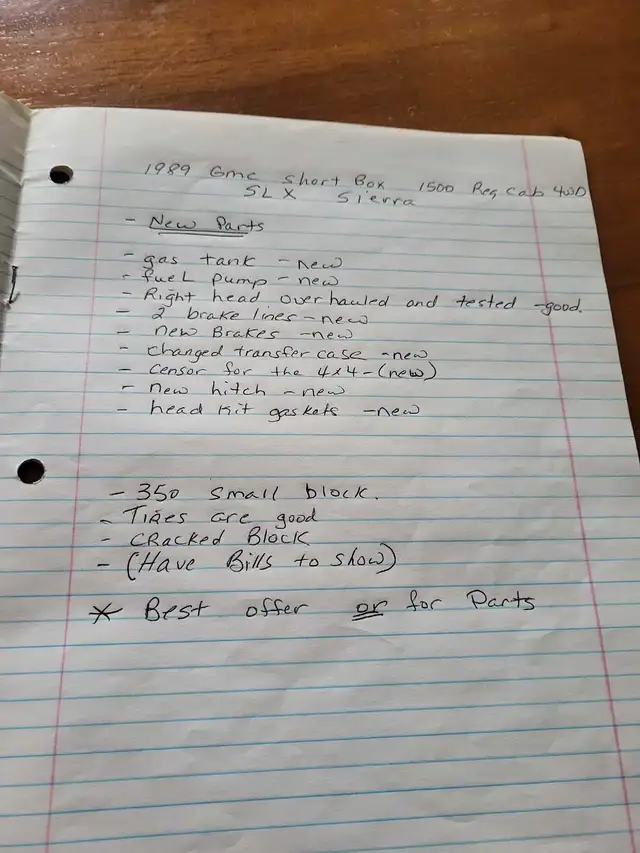 1989 Gmc short Box 1500 Reg cab 4WD
SLX Sierra
- New Parts
- gas tank - new
- fuel pump - new
- Right head overhauled and tested - good.
- 2 brake lines - new
- new Brakes - new
- changed transfer case - new
- censor for the 4x4 - (new)
- new hitch - new
- head kit gaskets - new
- 350 small block.
- Tires are good
- CRacked Block
- (Have Bills to show)
* Best offer or for Parts